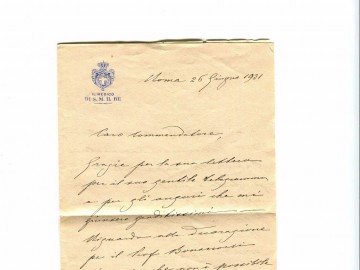 IL MEDICO
DI S. M. IL RE
Roma 26 Giugno 1921
Caro Commendatore,
Grazie per la sua lettera
per il suo gentile telegramma
e per gli auguri che mi
giunsero graditissimi
Riguardo alla decorazione
per il Prof
che non è possibile